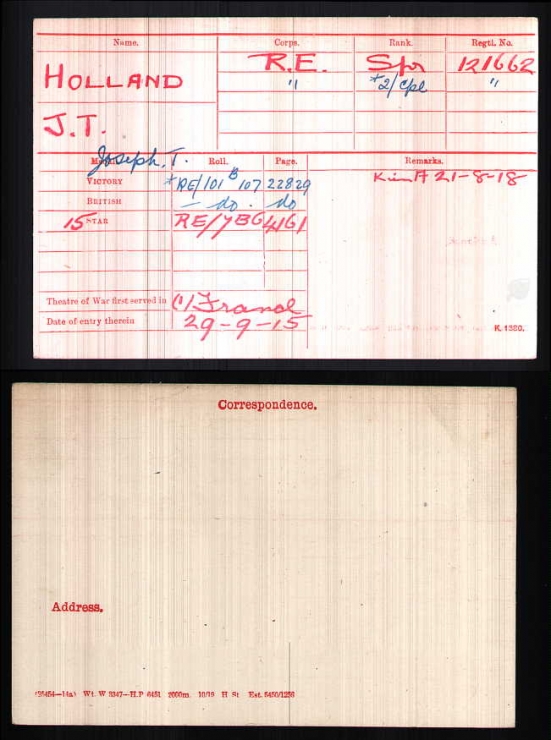 Name. Corps. Rank. Regtl. No.
HOLLAND R.E. Spr 121662
" *2/Cpl "
J.T.
Joseph. T.
Medal. Roll. Page. Remarks.
VICTORY *RE/101 B 107 22829 K in A 21-8-18
BRITISH — do. do
15 STAR RE/7B6 4161
Theatre of War first served in (1) France
Date of entry therein 29-9-15
K. 1380.
Correspondence.
Address.
Wt. W 3347—H.P 6451 2000m. 10/18 H St